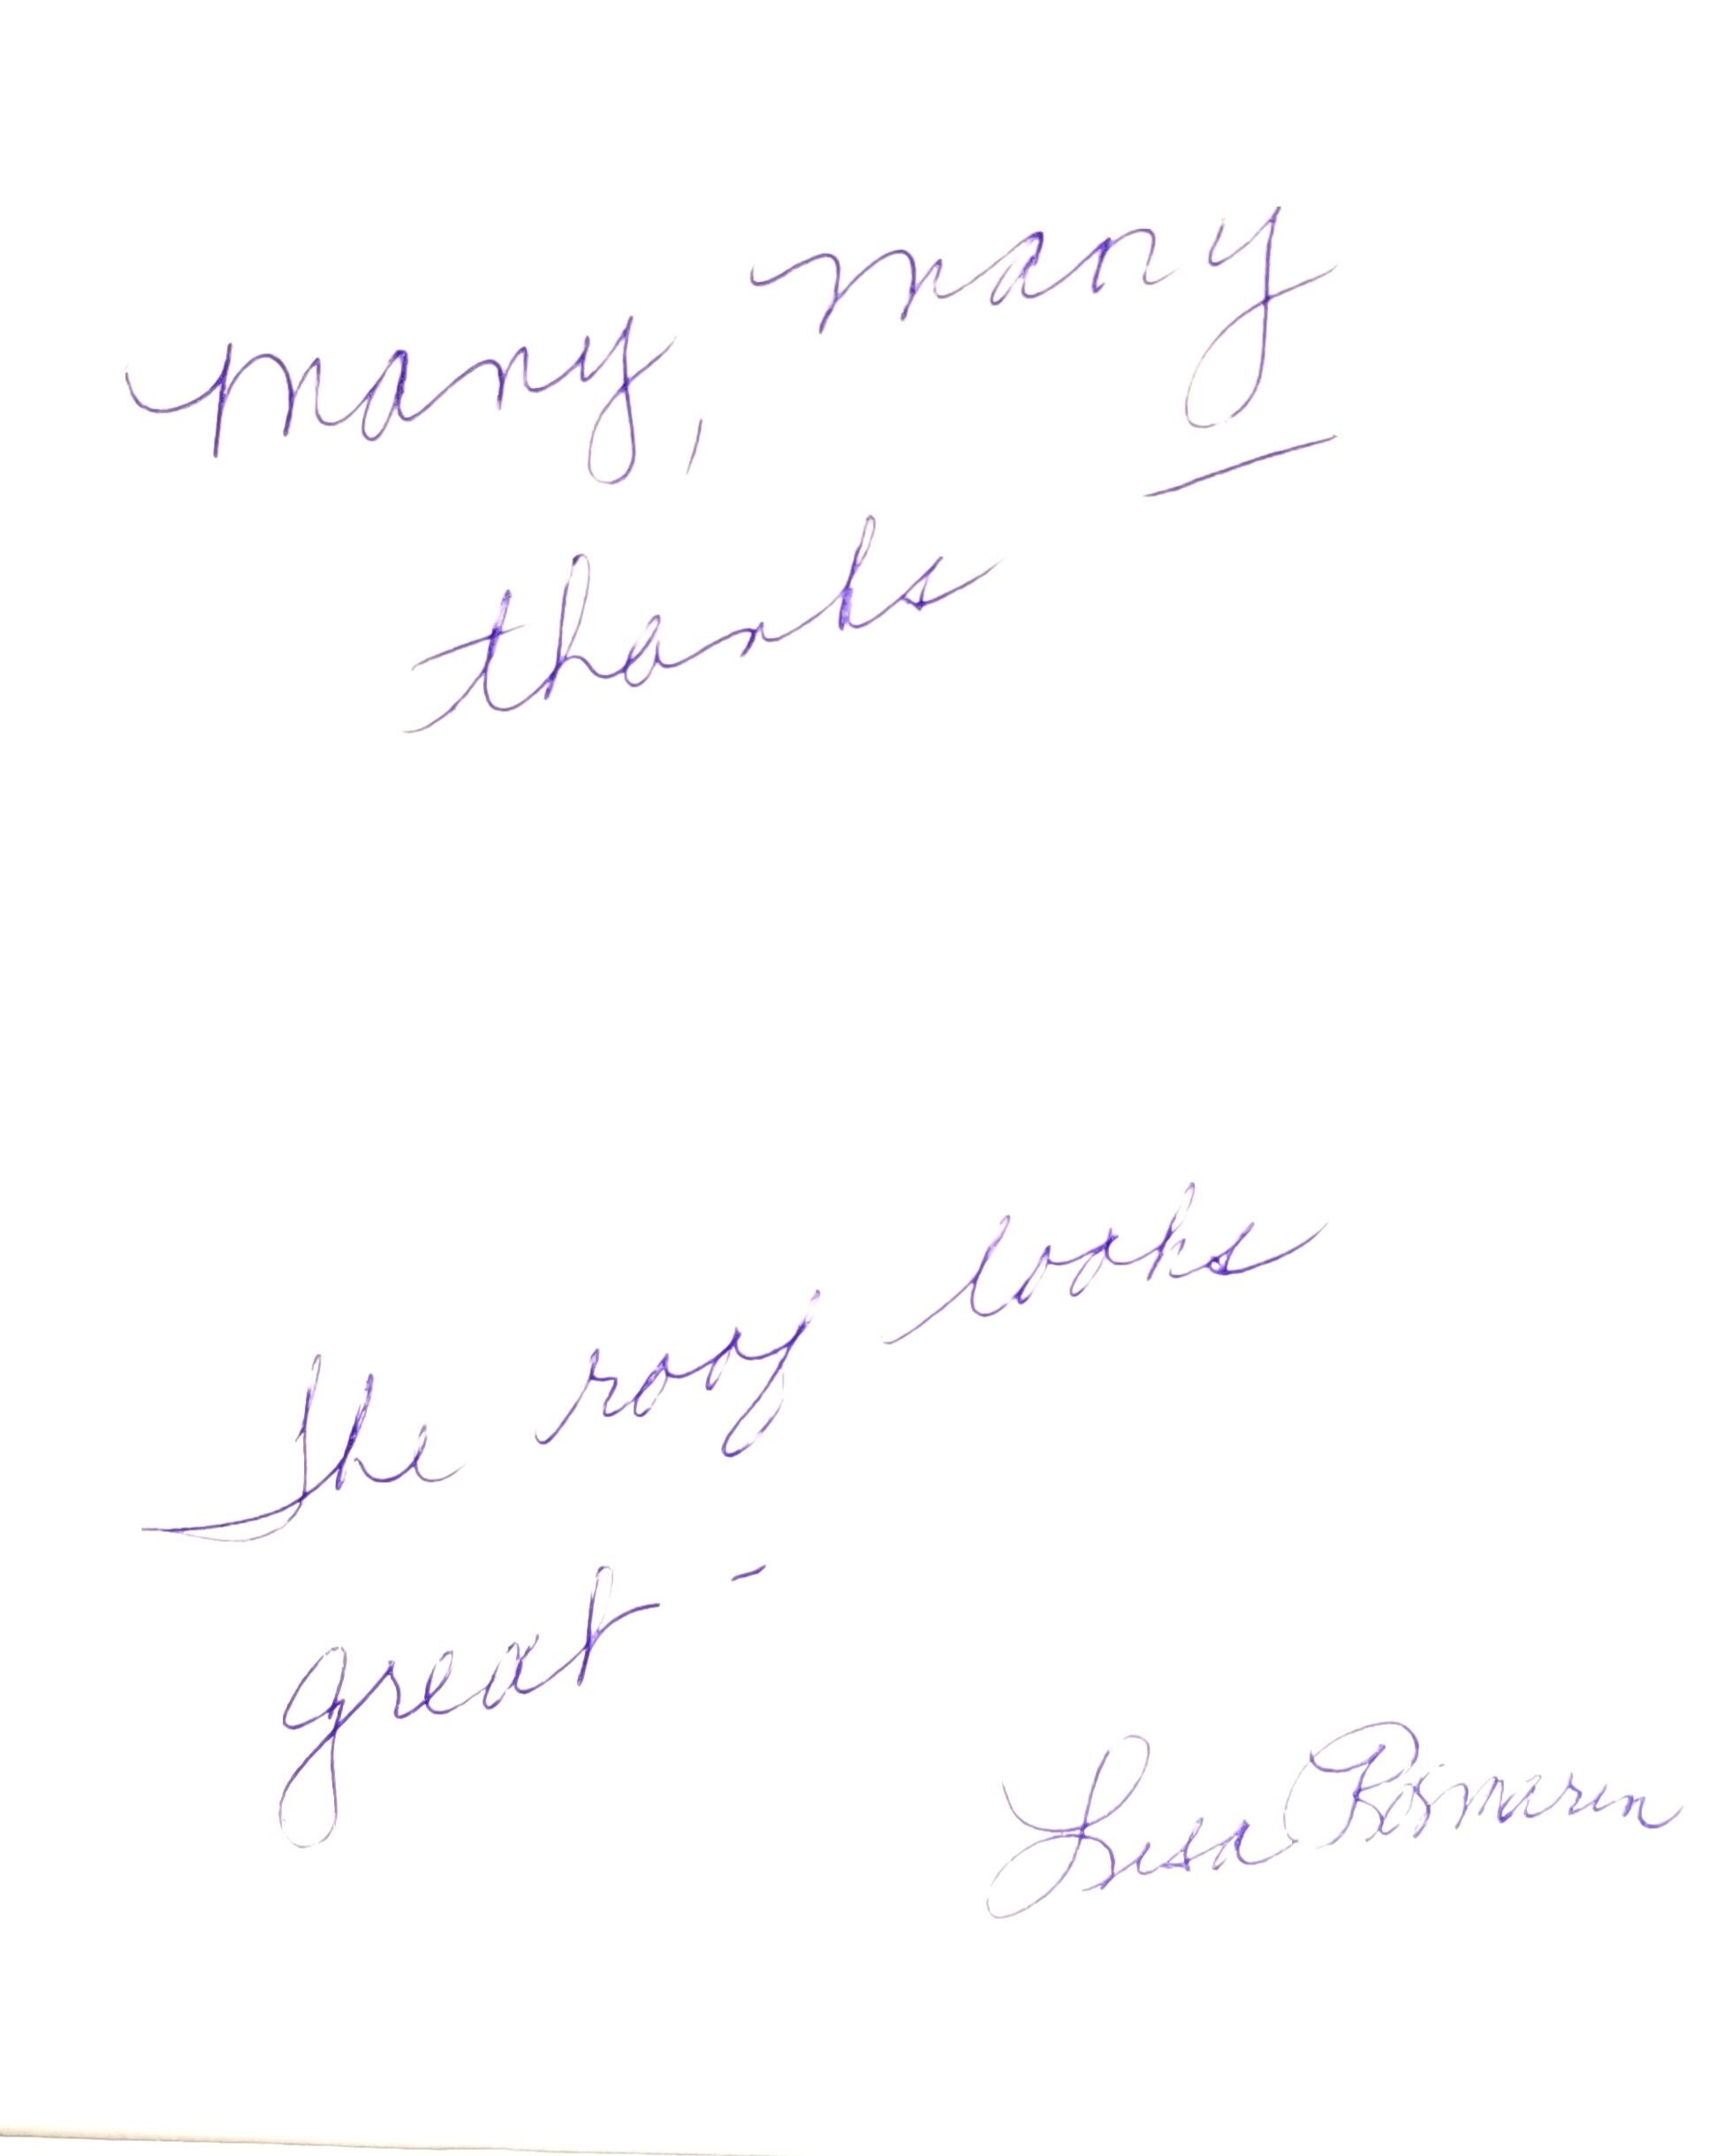 many, many
thanks
The roof looks
great -
Lisa